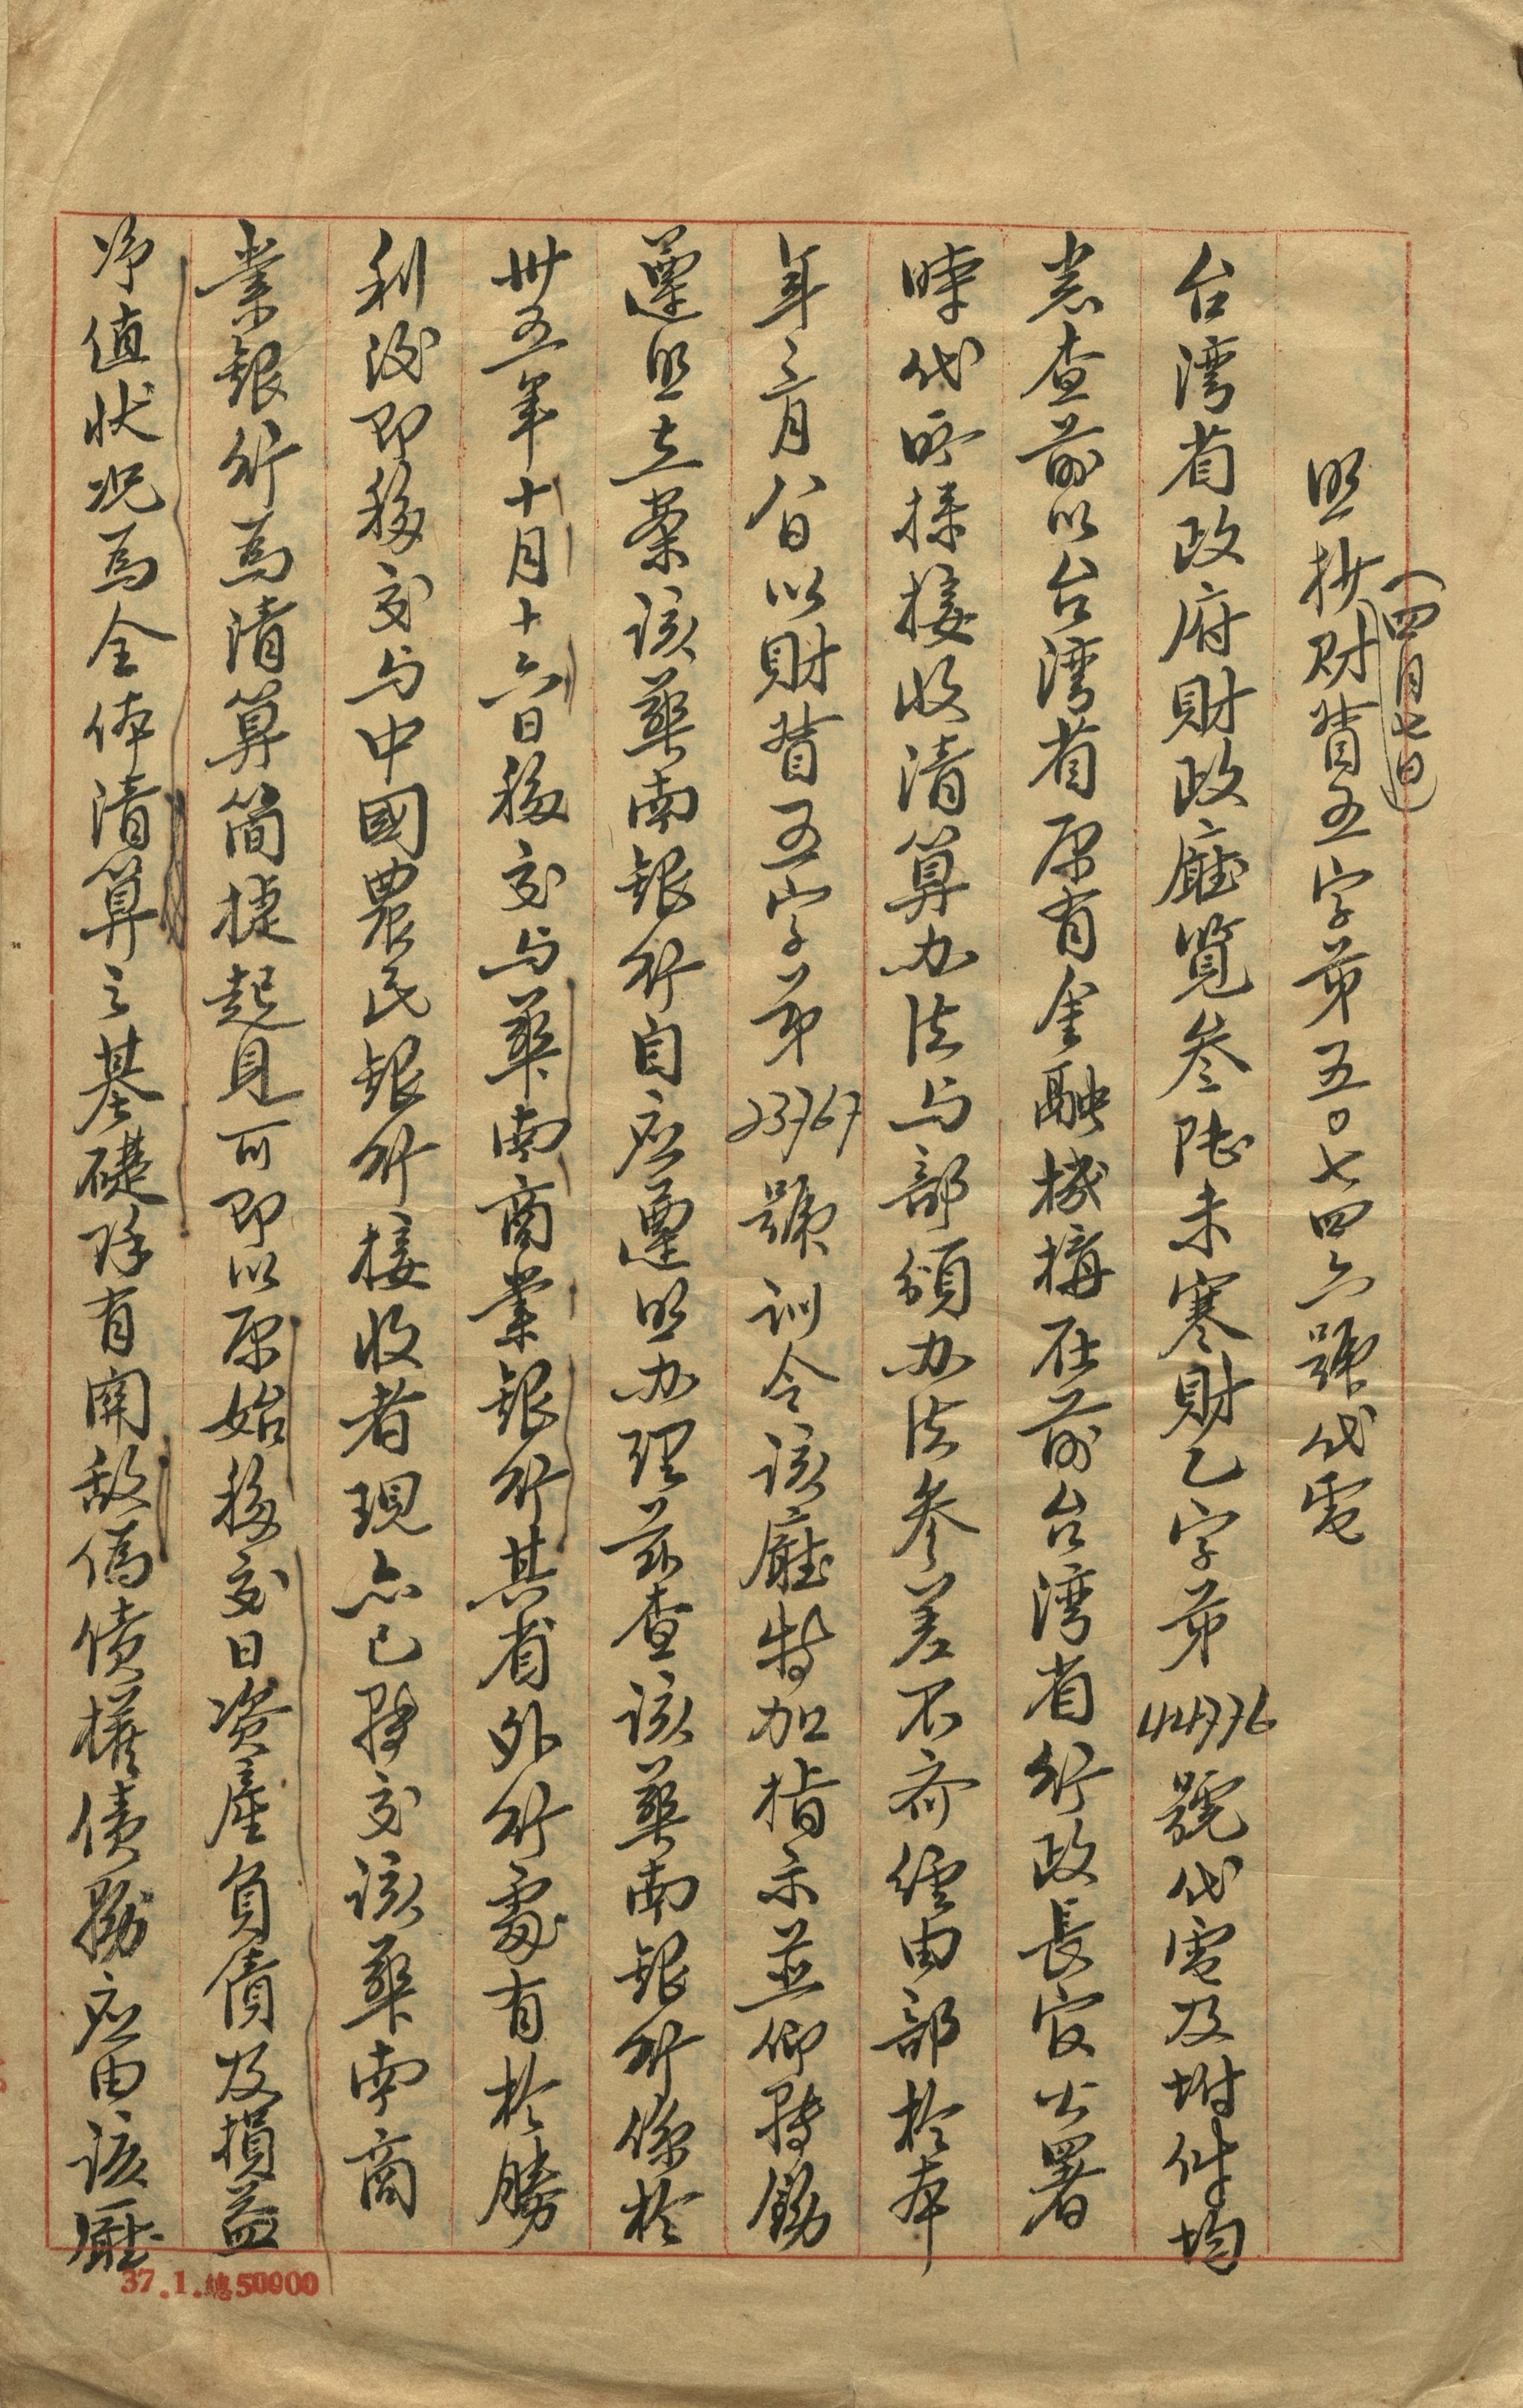 (四月七日)
照抄財督五字第五〇七四六號代電
台湾省政府財政廳覽叄陆未寒財乙字第44776號代電及附件均
悉查前以台湾省原有金融機構在前台湾省行政長官公署
時代所採接收清算办法与部頒办法參差不齐經由部於本
年三月八日以財督五字第23767號訓令該廳特加指示並仰轉飭
遵照立案該華南銀行自应遵照办理茲查該華南銀行係於
卅五年十月十六日移交与華南商業銀行其省外行處有於勝
利後即移交与中國農民銀行接收者現亦已轉交該華南商
業銀行為清算簡捷起見可即以原始移交日資產負債及損益
净值狀况為全体清算之基礎除有関敌偽債權債務应由該廳
37.1.總50000